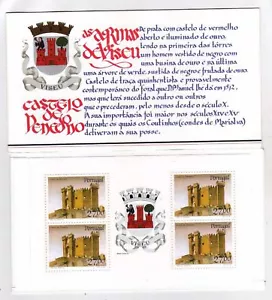 as armas
de Viseu
De prata com castelo de vermelho
aberto e iluminado de ouro
tendo na primeira das tôrres
um homem vestido de negro com
uma busina de ouro e na última
uma árvore de verde, sustido de negro frutada de ouro.
VISEU
castelo
de
Penedono
Castelo de traça característica e provavelmente
contemporâneo do foral que D. Manuel lhe dá em 1512,
mas que terá sucedido a outro no mesmo
ou outros que ocorreram pelo menos desde o século X.
A sua importância foi maior nos séculos XIV e XV
durante os quais os Coutinhos (condes de Marialva)
deliveram a sua posse.
Portugal
Portugal
VISEU
Portugal
Portugal